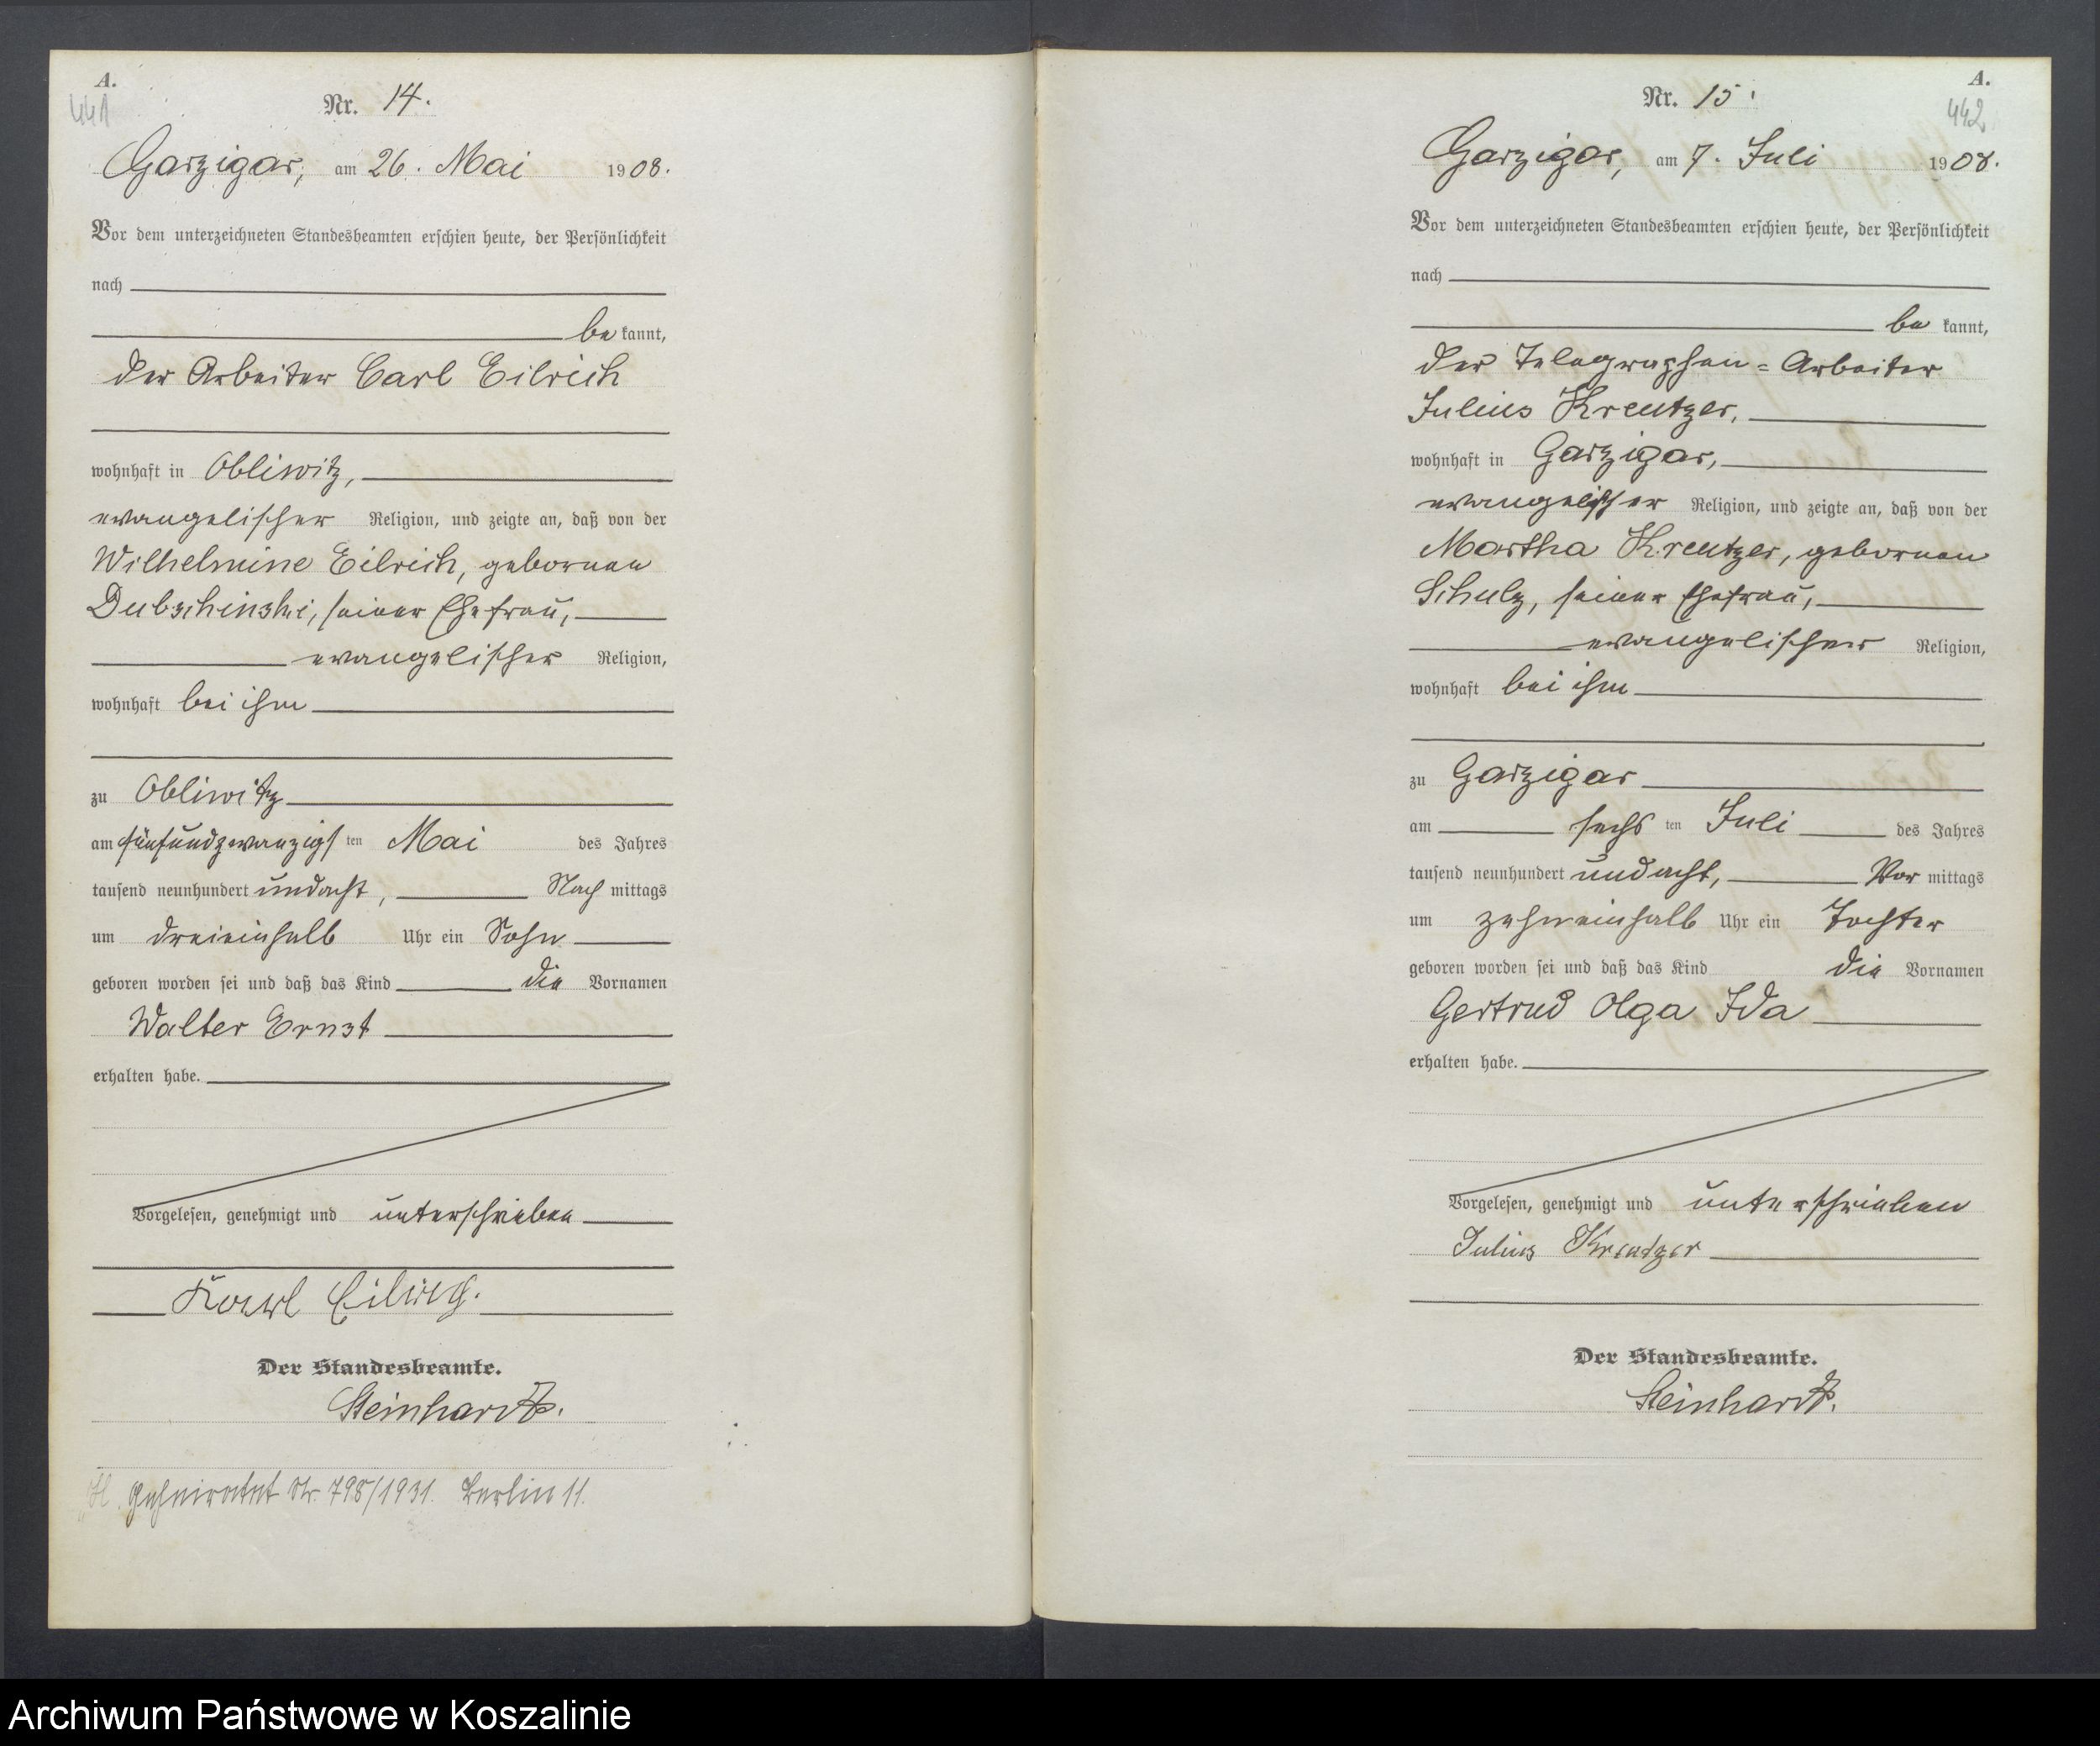 A.
441
Nr. 14.
Garzigar, am 26. Mai 1908.
Vor dem unterzeichneten Standesbeamten erschien heute, der Persönlichkeit
nach
be kannt,
der Arbeiter Carl Eilrich
wohnhaft in Obliwitz,
evangelischer Religion, und zeigte an, daß von der
Wilhelmine Eilrich, geborenen
Dubschinski, seiner Ehefrau,
evangelischer Religion,
wohnhaft bei ihm
zu Obliwitz
am fünfundzwanzigsten Mai des Jahres
tausend neunhundert undacht, Nach mittags
um dreieinhalb Uhr ein Sohn
geboren worden sei und daß das Kind die Vornamen
Walter Ernst
erhalten habe.
Vorgelesen, genehmigt und unterschrieben
Karl Eilrich.
Der Standesbeamte.
Steinhardt.
Geheiratet Nr. 798/1931. Berlin 11.
A.
442
Nr. 15.
Garzigar, am 7. Juli 1908.
Vor dem unterzeichneten Standesbeamten erschien heute, der Persönlichkeit
nach
be kannt,
der Telegraphen=Arbeiter
Julius Kreutzer,
wohnhaft in Garzigar,
evangelischer Religion, und zeigte an, daß von der
Martha Kreutzer, geborenen
Schulz, seiner Ehefrau,
evangelischer Religion,
wohnhaft bei ihm
zu Garzigar
am sechs ten Juli des Jahres
tausend neunhundert undacht, Vor mittags
um zehneinhalb Uhr ein Tochter
geboren worden sei und daß das Kind die Vornamen
Gertrud Olga Ida
erhalten habe.
Vorgelesen, genehmigt und unterschrieben
Julius Kreutzer
Der Standesbeamte.
Steinhardt.
Archiwum Państwowe w Koszalinie